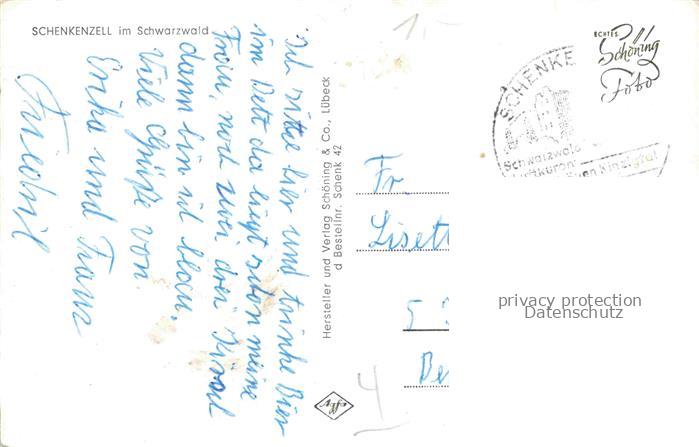 SCHENKENZELL im Schwarzwald
Ich sitze hier und trinke Bier
im Bett da liegt schon meine
Frau, noch zwei drei Kirsch
dann bin ich blau.
Viele Grüße von
Erika und Franz
Hersteller und Verlag Schöning & Co., Lübeck
d Bestellnr. Schenk 42
Agfa
1,-
ECHTES
Schöning
Foto
SCHENKE
Schwarzwald
Kinzigtal
Fr.
Lisett
5
4
privacy protection
Datenschutz